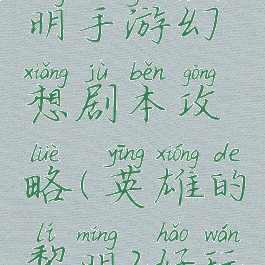 明手游幻
xiǎng jù běn gōng
想剧本攻
lüè yīng xióng de
略(英雄的
lí míng hǎo wán
黎明)好玩